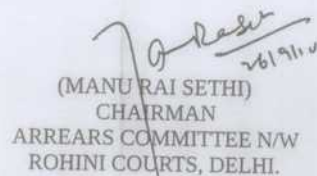 26/9/
(MANU RAI SETHI)
CHAIRMAN
ARREARS COMMITTEE N/W
ROHINI COURTS, DELHI.